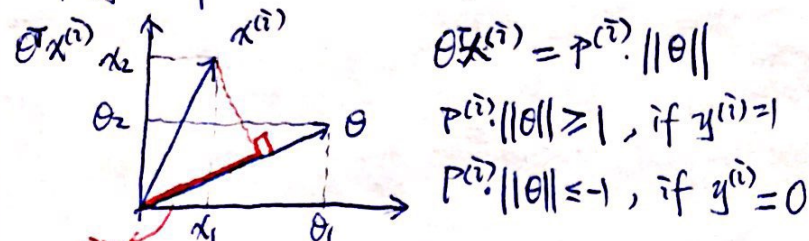 θᵀx⁽ⁱ⁾
x₂
x⁽ⁱ⁾
θ₂
θ
x₁
θ₁
θᵀx⁽ⁱ⁾ = p⁽ⁱ⁾·||θ||
p⁽ⁱ⁾·||θ|| ≥ 1 , if y⁽ⁱ⁾=1
p⁽ⁱ⁾·||θ|| ≤ -1 , if y⁽ⁱ⁾=0